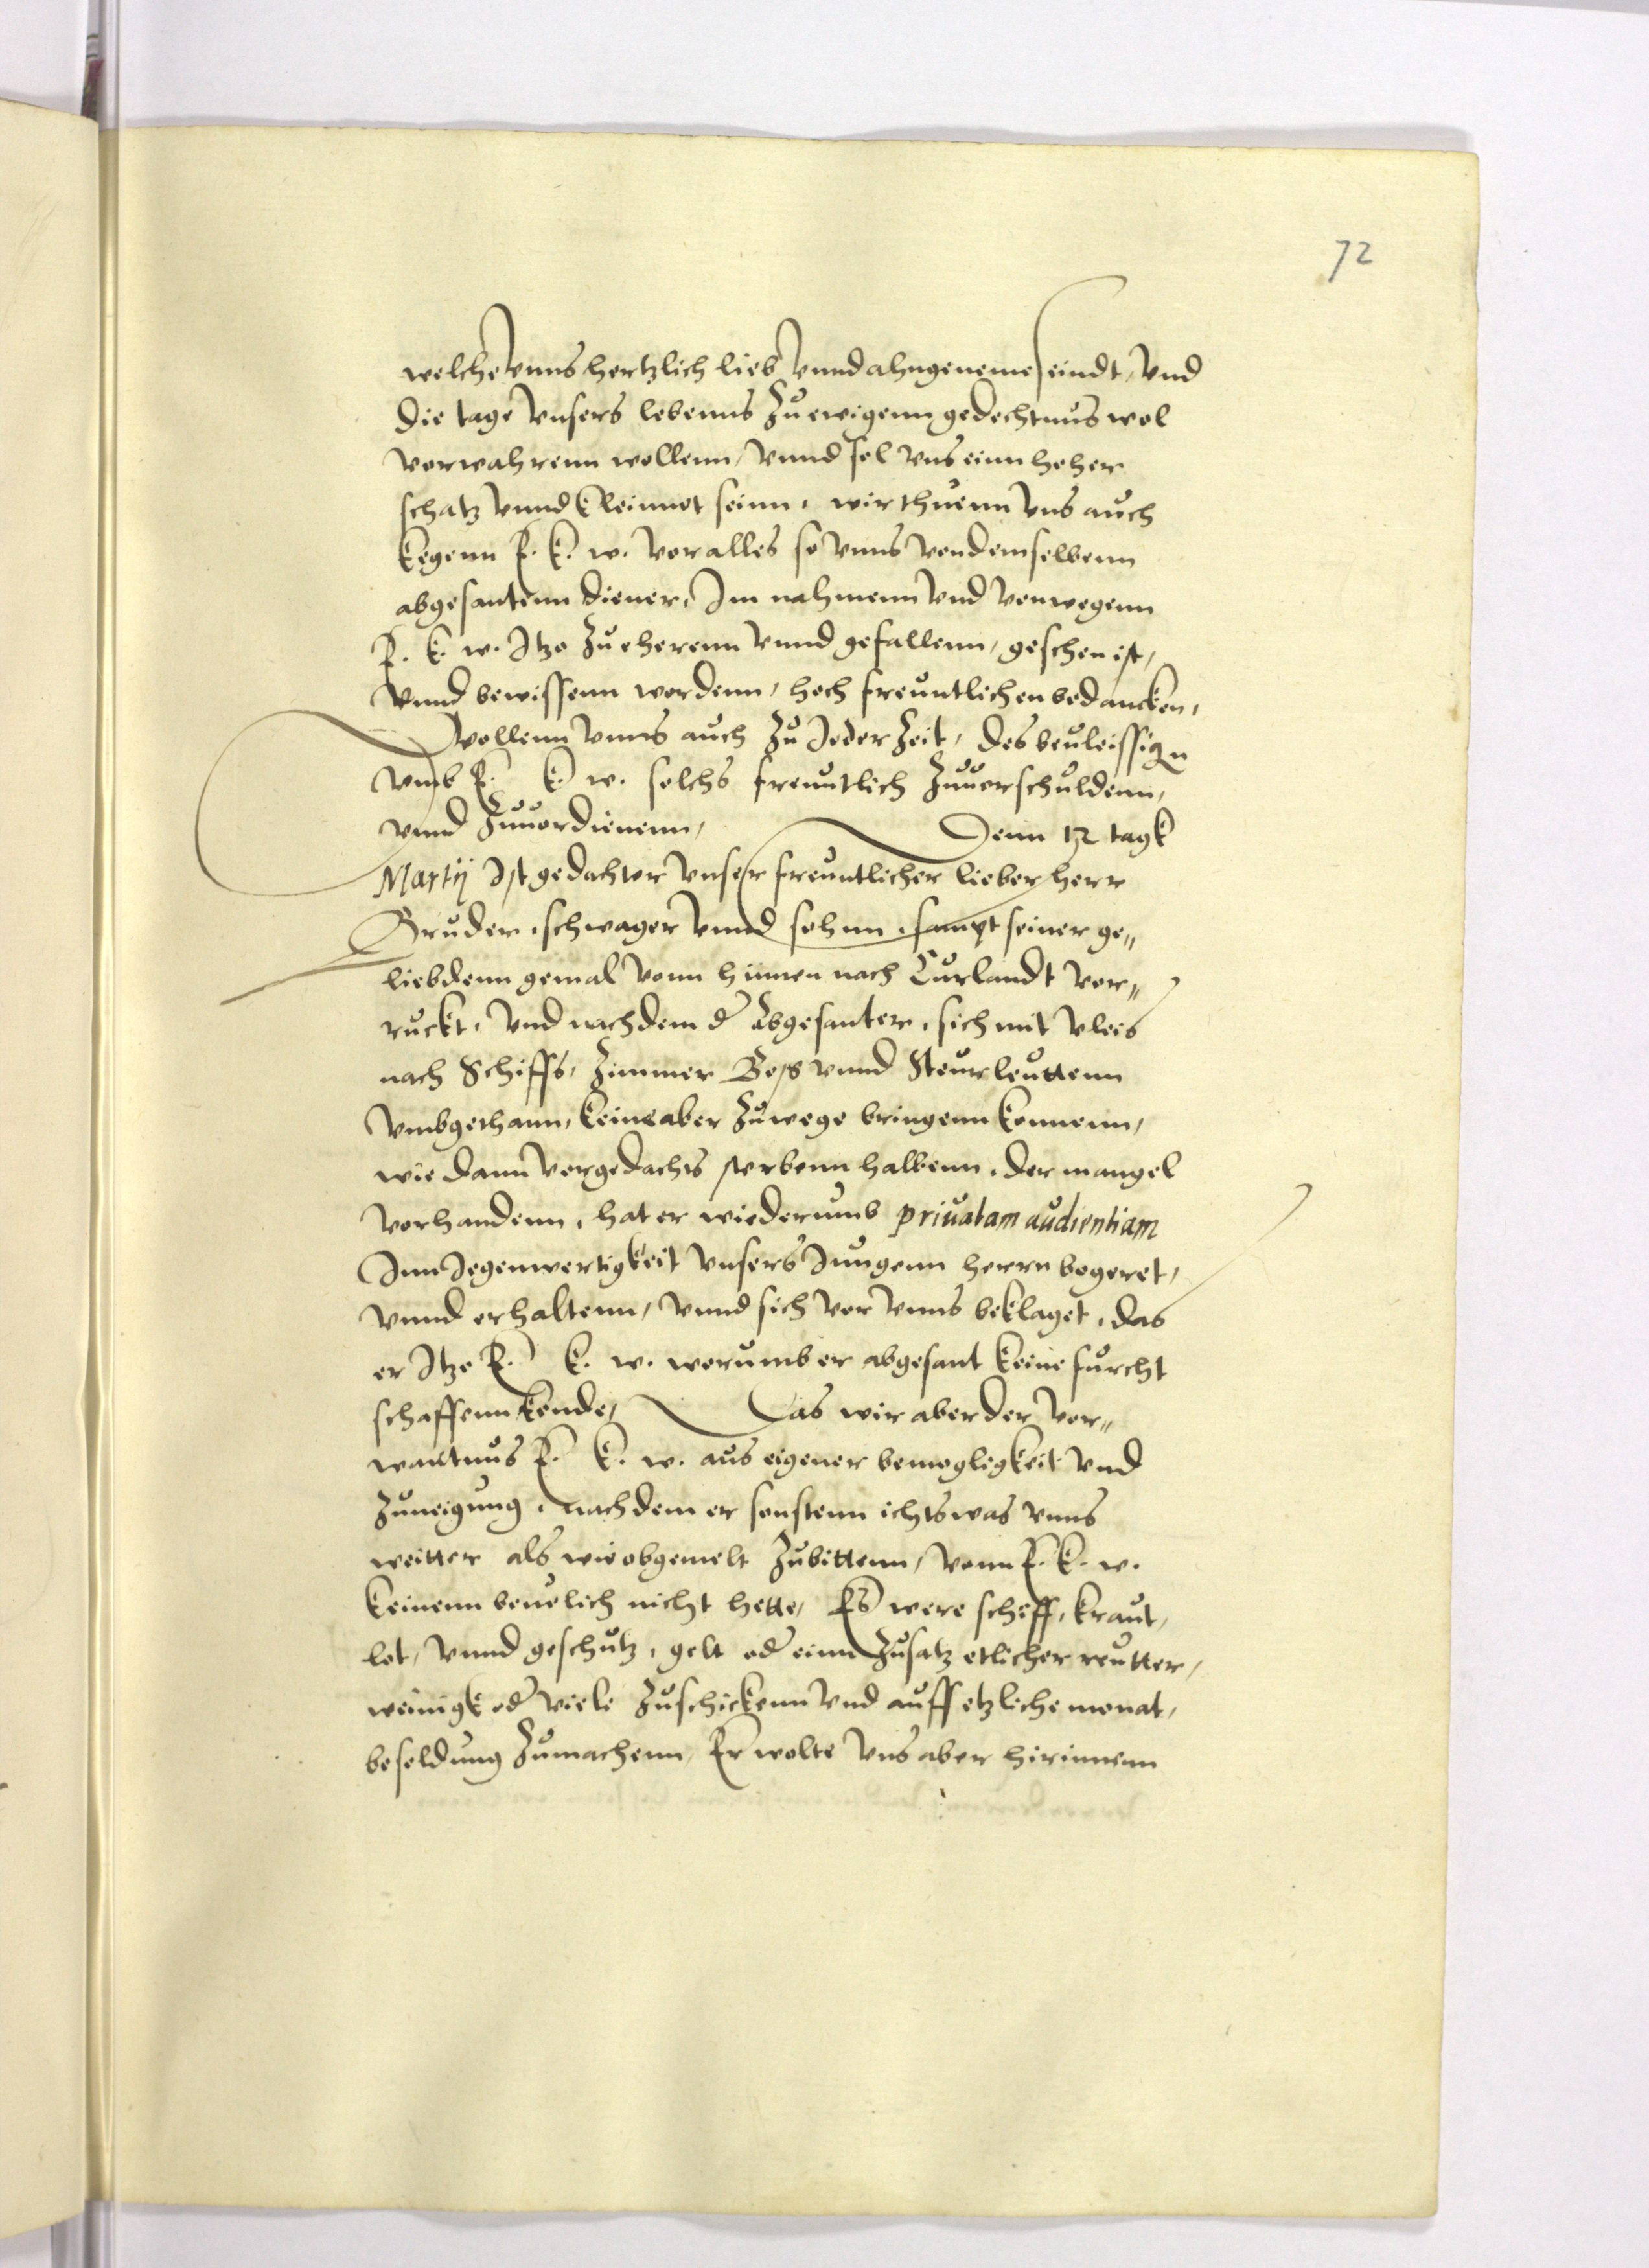 72
welche vnns hertzlich lieb vnnd ahngeneme seindt, vnd
die tage vnsers lebenns zu ewigenn gedechtnus wol
vorwahrenn wollenn, vnnd sol vns einn hoher
schatz vnnd kleinnot seinn, wir thuenn vns auch
kegenn E. k. w. vor alles so vnns von demselbenn
abgesantenn diener, Im nahmenn vnd von wegenn
E. k. w. Itzo zu eherenn vnnd gefallenn, geschen ist,
vnnd bewissenn wordenn, hoch freuntlichen bedancken,
wollenn vnns auch zu Jeder Zeit, des beuleissign
vmb E. k. w. solchs freuntlich zuuorschuldenn,
vnnd zuuordienenn, Denn 12 tagk
Martij Ist gedachter vnser freuntlicher lieber herr
Bruder, schwager vnnd sohnn, sampt seiner ge„
liebdenn gemal vonn hinnen nach Curlandt vor„
ruckt, vnd nachdem d' Abgesanter, sich mit vleis
nach Schiffs, Zimmer Boss vnnd Steurleuttenn
vmbgethann, keine aber zuwege bringenn konnenn,
wie dann vorgedachts sterbenn halbenn, der mangel
vorhandenn, hat er wiederumb priuatam audientiam
Inn Jegenwertigkeit vnsers Jungenn herrn begeret,
vnnd erhaltenn, vnnd sich vor vnns beklaget, das
er Itzo E. k. w. worumb er abgesant keine furcht
schaffenn konde, Das wir aber der vor„
wantnus E. k. w. aus eigener bewogligkeit vnd
zuneigung, nachdem er sonstenn ichtswas vnns
weitter als wie obgemelt zubittenn, vonn E. k. w.
keinenn beuelich nicht hette, Es were schiff, kraut,
lot, vnnd geschutz, gelt od' einn zusatz etlicher reutter,
weinigk od' viele zuschickenn vnd auff etzliche monat,
besoldung zumachenn, Er wolte vns aber hirinnenn